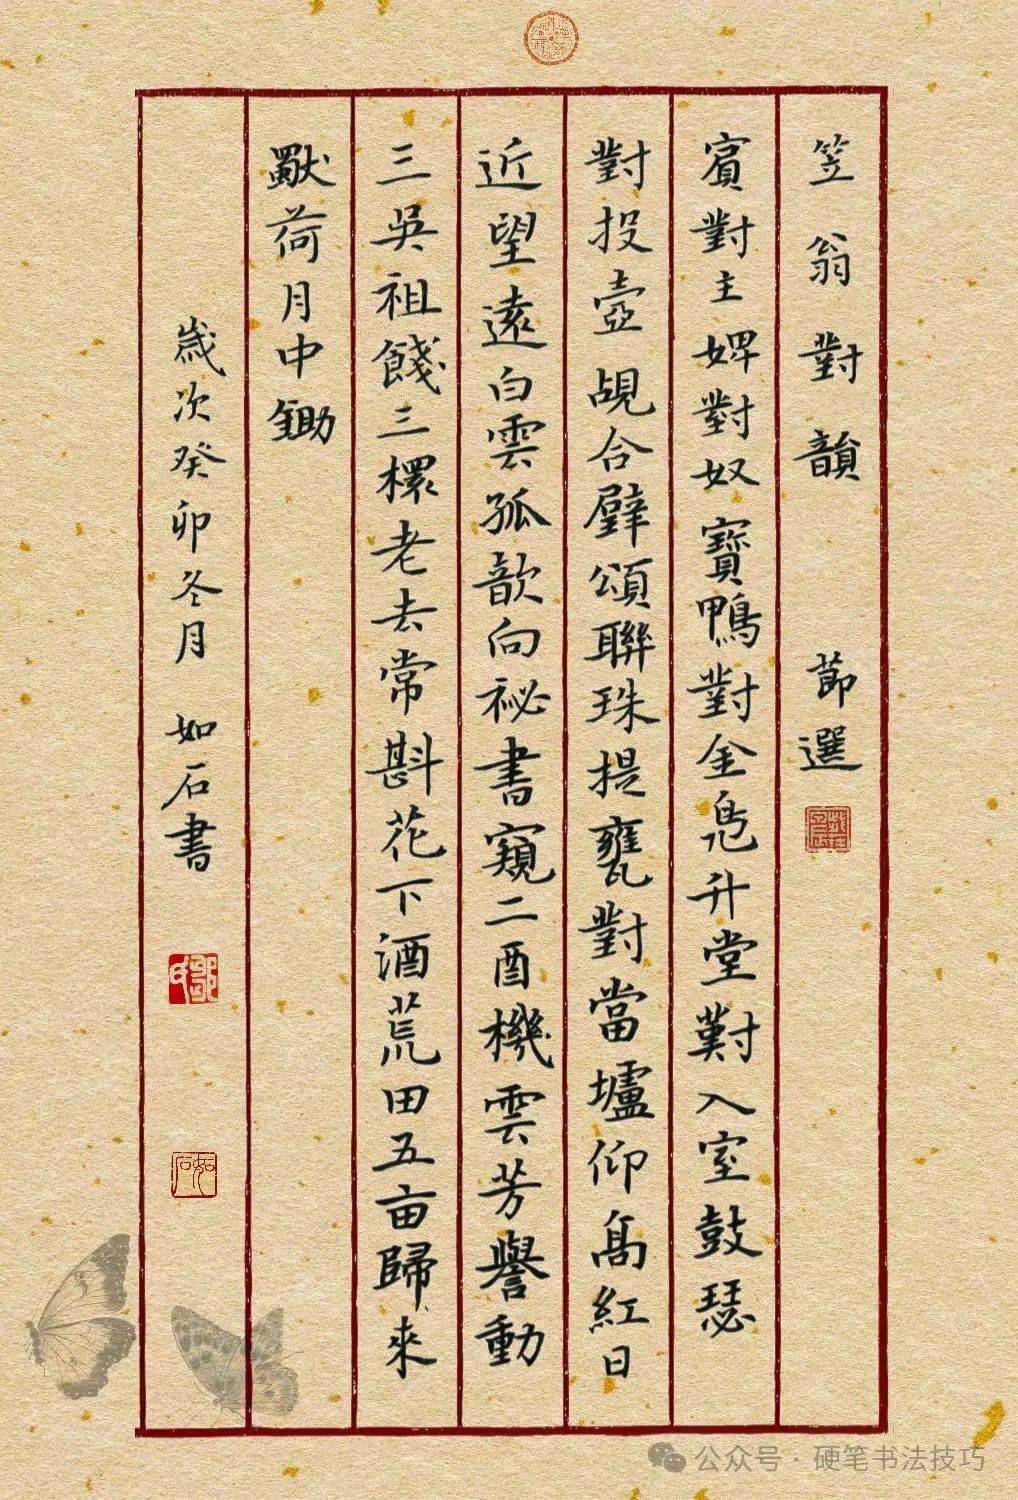 笠翁對韻 節選
賓對主婢對奴寶鴨對金鳧升堂對入室鼓瑟
對投壺覘合璧頌聯珠提甕對當壚仰高紅日
近望遠白雲孤歆向祕書窺二酉機雲芳譽動
三吳祖餞三櫰老去常斟花下酒荒田五亩歸來
獸荷月中鋤
歲次癸卯冬月 如石書
如石
公众号·硬笔书法技巧